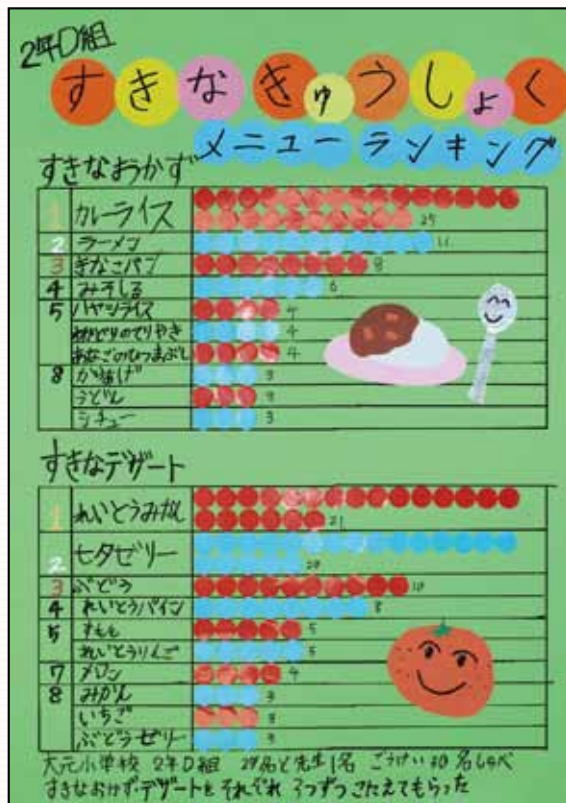 2年D組
すきなきゅうしょく
メニューランキング
すきなおかず
1 カレーライス 25
2 ラーメン 11
3 きなこパン 8
4 みそしる 6
5 ハヤシライス 4
わかどりのてりやき 4
あなごのひつまぶし 4
8 からあげ 3
うどん 3
シチュー 3
すきなデザート
1 れいとうみかん 21
2 七夕ゼリー 20
3 ぶどう 10
4 れいとうパイン 8
5 すもも 5
れいとうりんご 5
7 メロン 4
8 みかん 3
いちご 3
ぶどうゼリー 3
大元小学校 2年D組 29名と先生1名 ごうけい30名しらべ
すきなおかず・デザートをそれぞれ 3つずつこたえてもらった